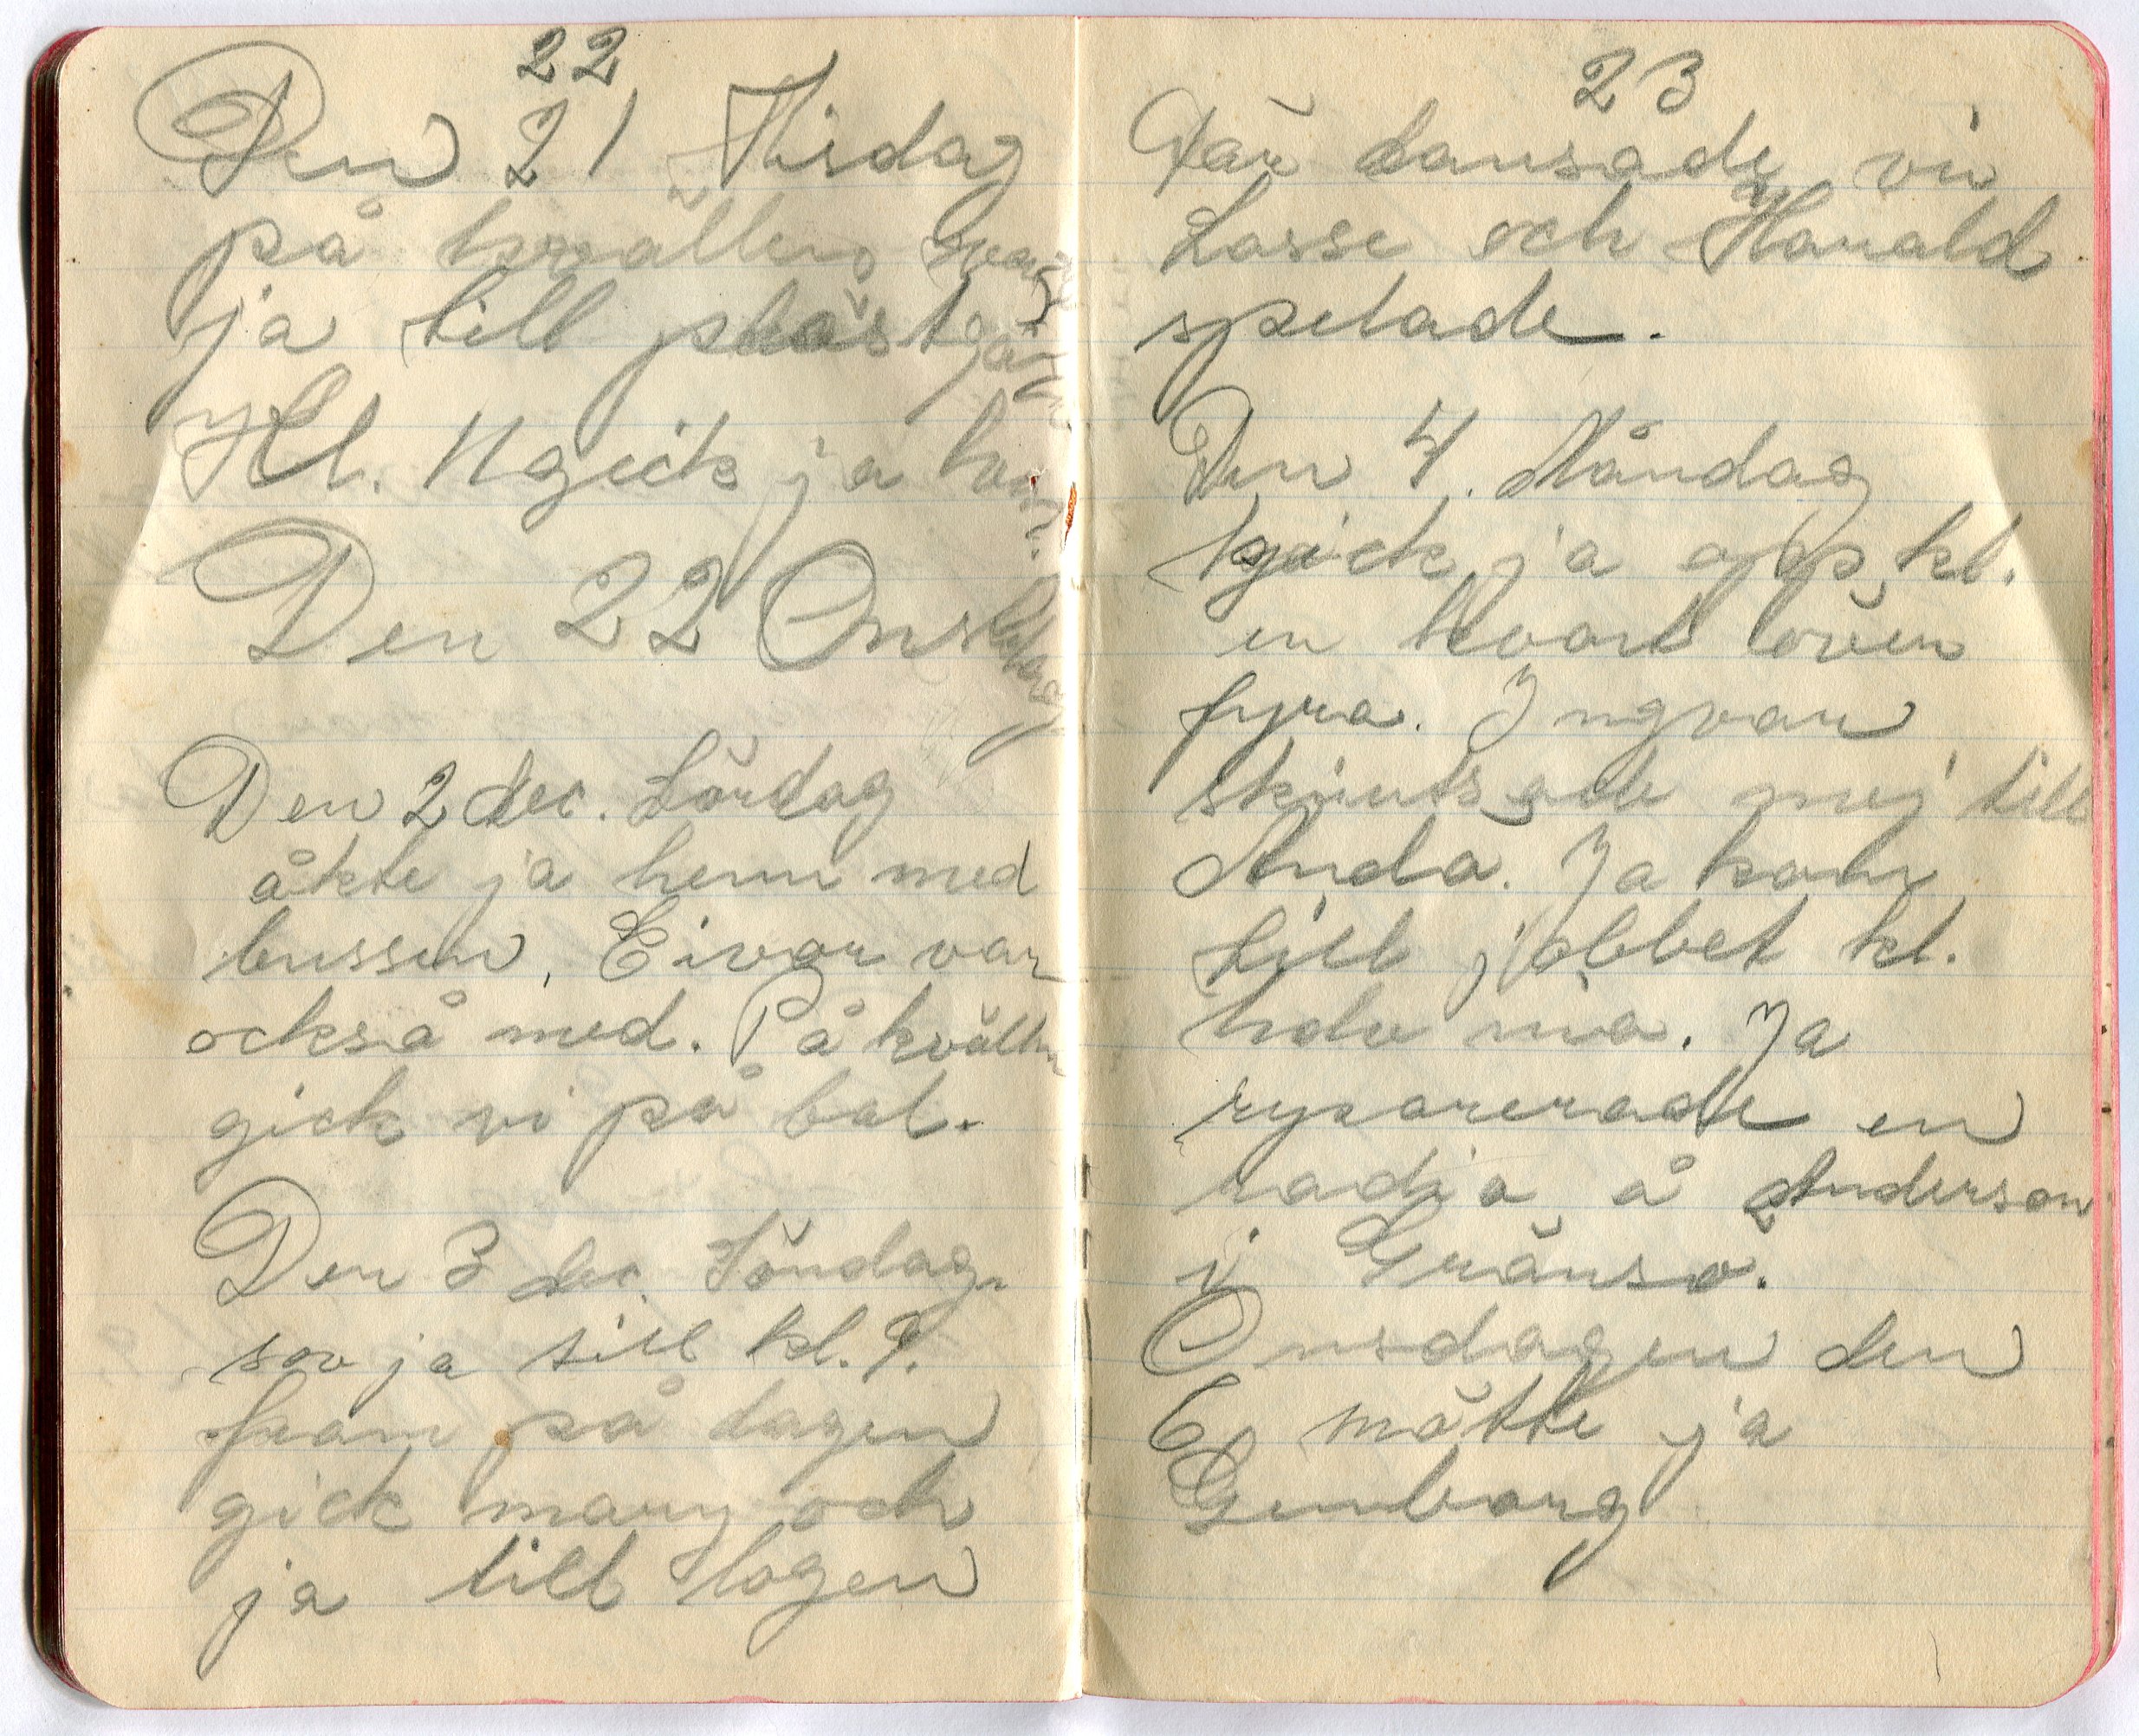 22
Den 21 Tisdag
på kvällen var
ja till prästgår
Kl. 11 gick ja hem
Den 22 Onsdag
Den 2 dec. Lördag
åkte ja hem med
bussen, Eivor var
också med. På kvällen
gick vi på bal.
Den 3 dec. Söndag.
sov ja till kl. 9.
fram på dagen
gick mary och
ja till logen
23
Där dansade vi
Lasse och Harald
spelade.
Den 4. Måndag
gick ja opp kl.
en kvart över
fyra. Ingvar
skjutsade mej till
Anda. Ja kom
till jobbet kl.
Ja
ryparerade en
radio å Anderson
i Gränsö.
Onsdagen den
6 mötte ja
Gunborg